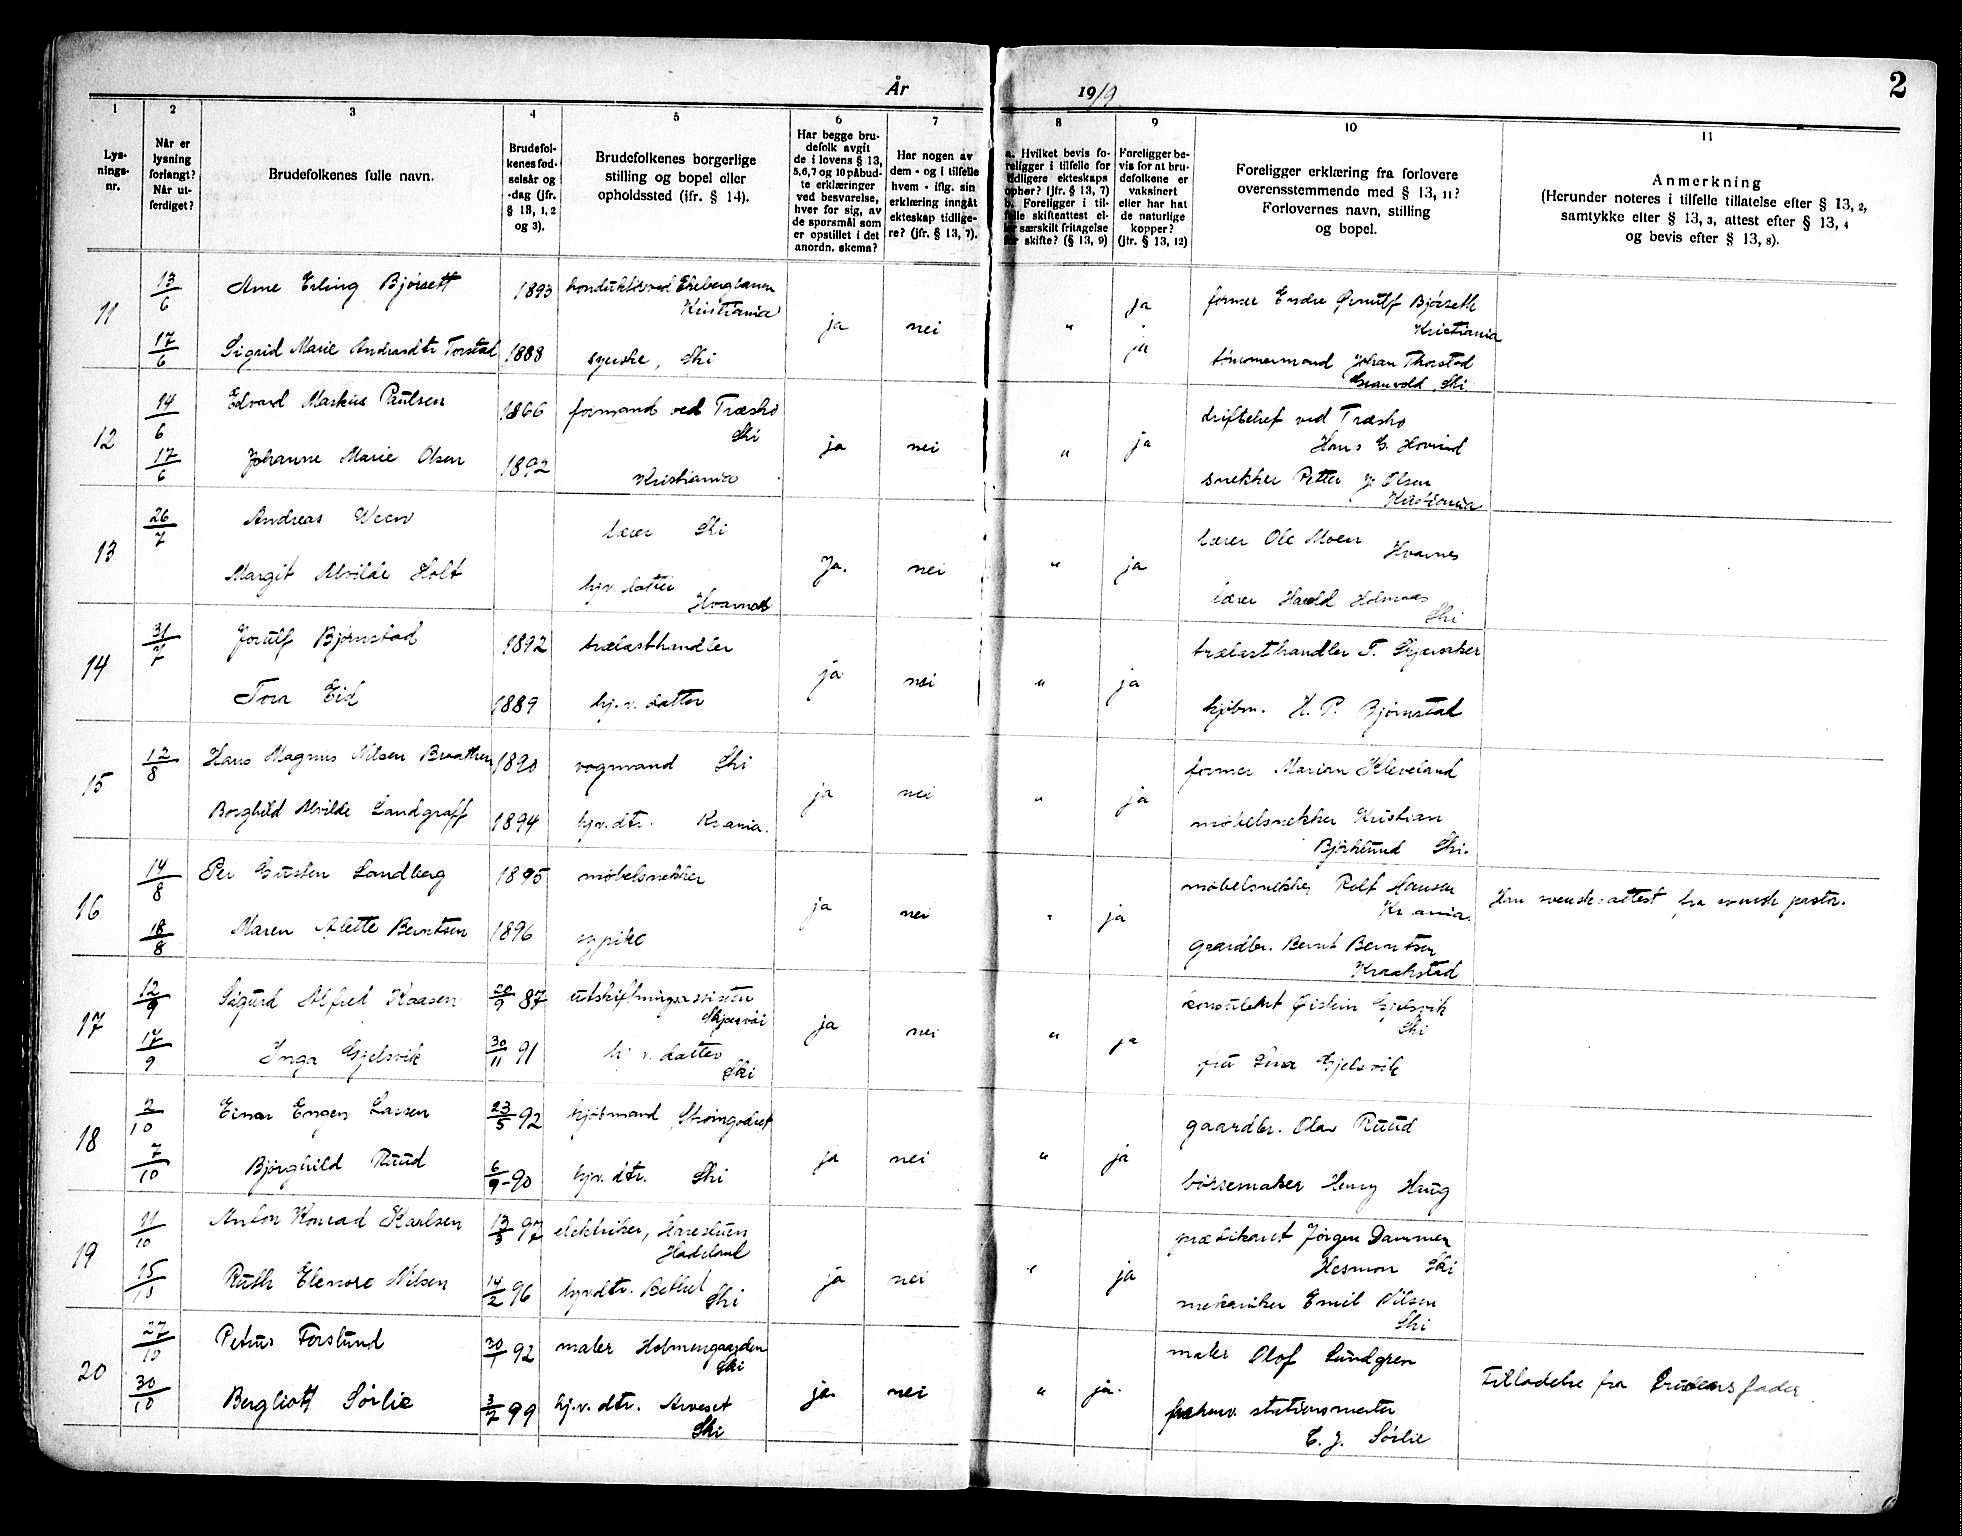 År 1919
2
1 2 3 4 5 6 7 8 9 10 11
Lys-
nings-
nr.
Når er
lysning
forlangt?
Når ut-
ferdiget?
Brudefolkenes fulle navn.
Brudefol-
kenes fød-
selsår og
-dag (jfr.
§ 13, 1, 2
og 3).
Brudefolkenes borgerlige
stilling og bopel eller
opholdssted (jfr. § 14).
Har begge bru-
defolk avgit
de i lovens § 13,
5,6,7 og 10 påbud-
te erklæringer
ved besvarelse,
hver for sig, av
de spørsmål som
er opstillet i det
anordn. skema?
Har nogen av
dem - og i tilfelle
hvem - iflg. sin
erklæring inngått
ekteskap tidlige-
re? (jfr. § 13, 7).
a. Hvilket bevis fo-
religger i tilfelle for
tidligere ekteskaps
ophør? (jfr. § 13, 7)
b. Foreligger i til-
felle skifteattest el-
ler særskilt fritagelse
for skifte? (§ 13, 9)
Foreligger be-
vis for at bru-
defolkene er
vaksinert
eller har hat
de naturlige
kopper?
(jfr. § 13, 12)
Foreligger erklæring fra forlovere
overensstemmende med § 13, 11?
Forlovernes navn, stilling
og bopel.
Anmerkning
(Herunder noteres i tilfelle tillatelse efter § 13, 2,
samtykke efter § 13, 3, attest efter § 13, 4
og bevis efter § 13, 8).
11
13/6 Arne Erling Bjørsett 1893 konduktør ved Ekebergbanen
Kristiania
ja nei " ja
former Endre Ørnulf Bjørseth
Kristiania
17/6 Sigrid Marie Andreasdtr Torstad 1888 syerske, Ski
ja
tømmermand Johan Thorstad
Granvold, Ski
12
14/6 Edvard Markus Paulsen 1866 formand ved Træsko
Ski
ja nei " ja
driftchef ved Træsko
Hans G. Hovind
17/6 Johanne Marie Olsen 1892 Kristiania
snekker Petter J. Olsen
Kristiania
13
26/7 Andreas Ween
lærer Ski
Ja. nei " ja
lærer Ole Moen
Hvarnes
Margit Alvilde Holt
hjv. datter
Hvarnes
lærer Harald Holmnæs
Ski
14
31/7 Jorulf Bjørnstad 1892 trælasthandler
ja nei " ja
trælasthandler T. Skjønhaker
Tora Eid 1889 hj. v. datter
kjøbm. H. P. Bjørnstad
15
12/8 Hans Magnus Nilsen Braathen 1890 vognmand Ski
ja nei " ja
former Marian Kleveland
Borghild Alvilde Landgraff 1894 hjv. dtr. Kr.ania.
møbelsnekker Kristian
Bjørklund Ski.
16
14/8 Per Gusten Landberg 1895 møbelsnekker
ja nei " ja
møbelsnekker Rolf Hansen
Kr.ania.
Han svensk: attest fra svensk pastor.
18/8 Maren Alette Berntsen 1896 sypike
gaardbr. Bernt Berntsen
Kraakstad
17
12/9 Sigurd Alfred Kaasen 20/9 87 utskiftningsassistent
Skjærvøi
ja nei " ja
konsulent Øistein Gjelsvik
Ski
17/9 Inga Gjelsvik 30/11 91 hj. v. datter
Ski
fru Lina Gjelsvik
18
2/10 Einar Engen Larsen 23/5 92 kjøbmand Skoingodset
ja nei " ja
gaardbr. Olav Ruud
7/10 Bjørghild Ruud 6/9 - 90 hjv. dtr. Ski
børsemaker Henry Haug
19
11/10 Anton Konrad Karlsen 13/3 97 elektriker, Harestuen
Hadeland
ja nei " ja
prædikant Jørgen Dammen
Hesmon Ski
15/10 Ruth Elenore Nilsen 14/2 96 hjv dtr. Bethel
Ski
mekaniker Emil Nilsen
Ski
20
27/10 Petrus Forslund 30/1 92 maler Holmengaarden
Ski
ja. nei " ja.
maler Olof Lundgren
Tilladelse fra Brudens fader
30/10 Bergliott Sørlie 3/7 99 hj. v. dtr. Arveset
Ski
stationsmester
E. J. Sørlie